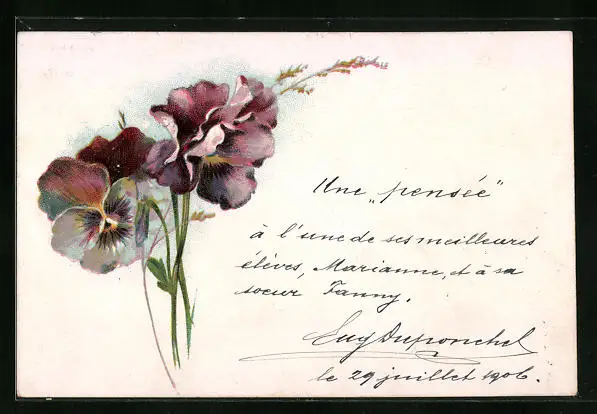 Une „pensée"
à l'une de ses meilleures
élèves, Marianne, et à sa
soeur Fanny.
Eug Duponchel
le 29 juillet 1906.